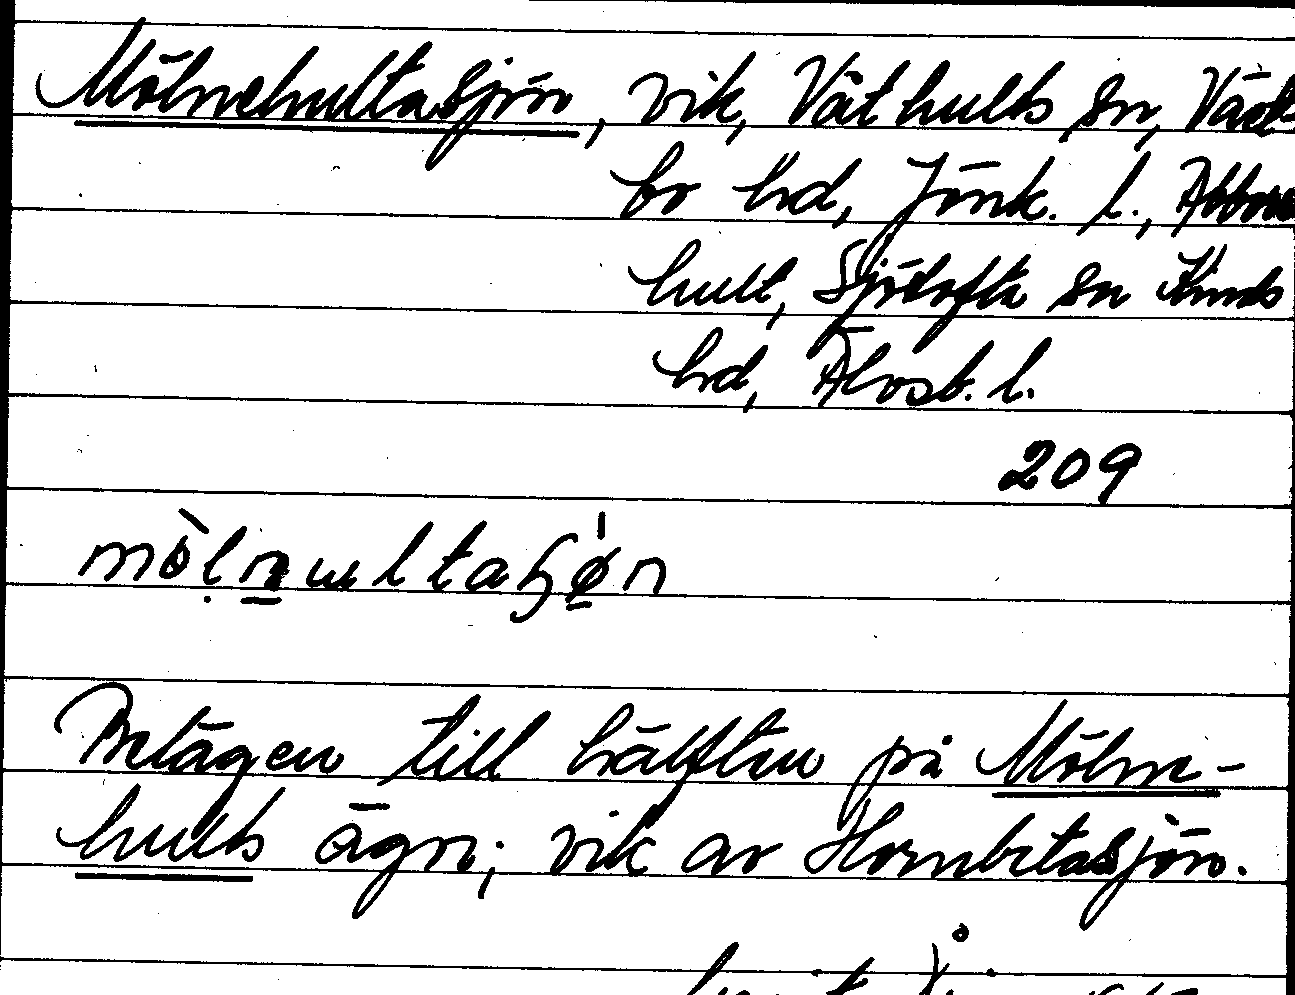 Mölnehultasjön, vik, Våthults sn, Väst-
bo hd, Jönk. l., Abborra
hult, Sjötofta sn Kinds
hd, Älvsb. l.
209
mòḷn̲ultaɧø̲̍n
Belägen till hälften på Mölne-
hults ägor; vik av Hornbetasjön.